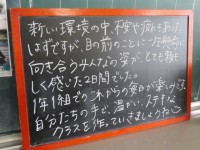 新しい環境の中、不安や疲れもあった
はずですが、目の前のことに一生懸命に
向き合うみんなの姿が、とても頼も
しく感じた2日間でした。
1年1組でのこれからの毎日が楽しみです。
自分たちの手で、温かい、ステキな
クラスを作っていきましょうね